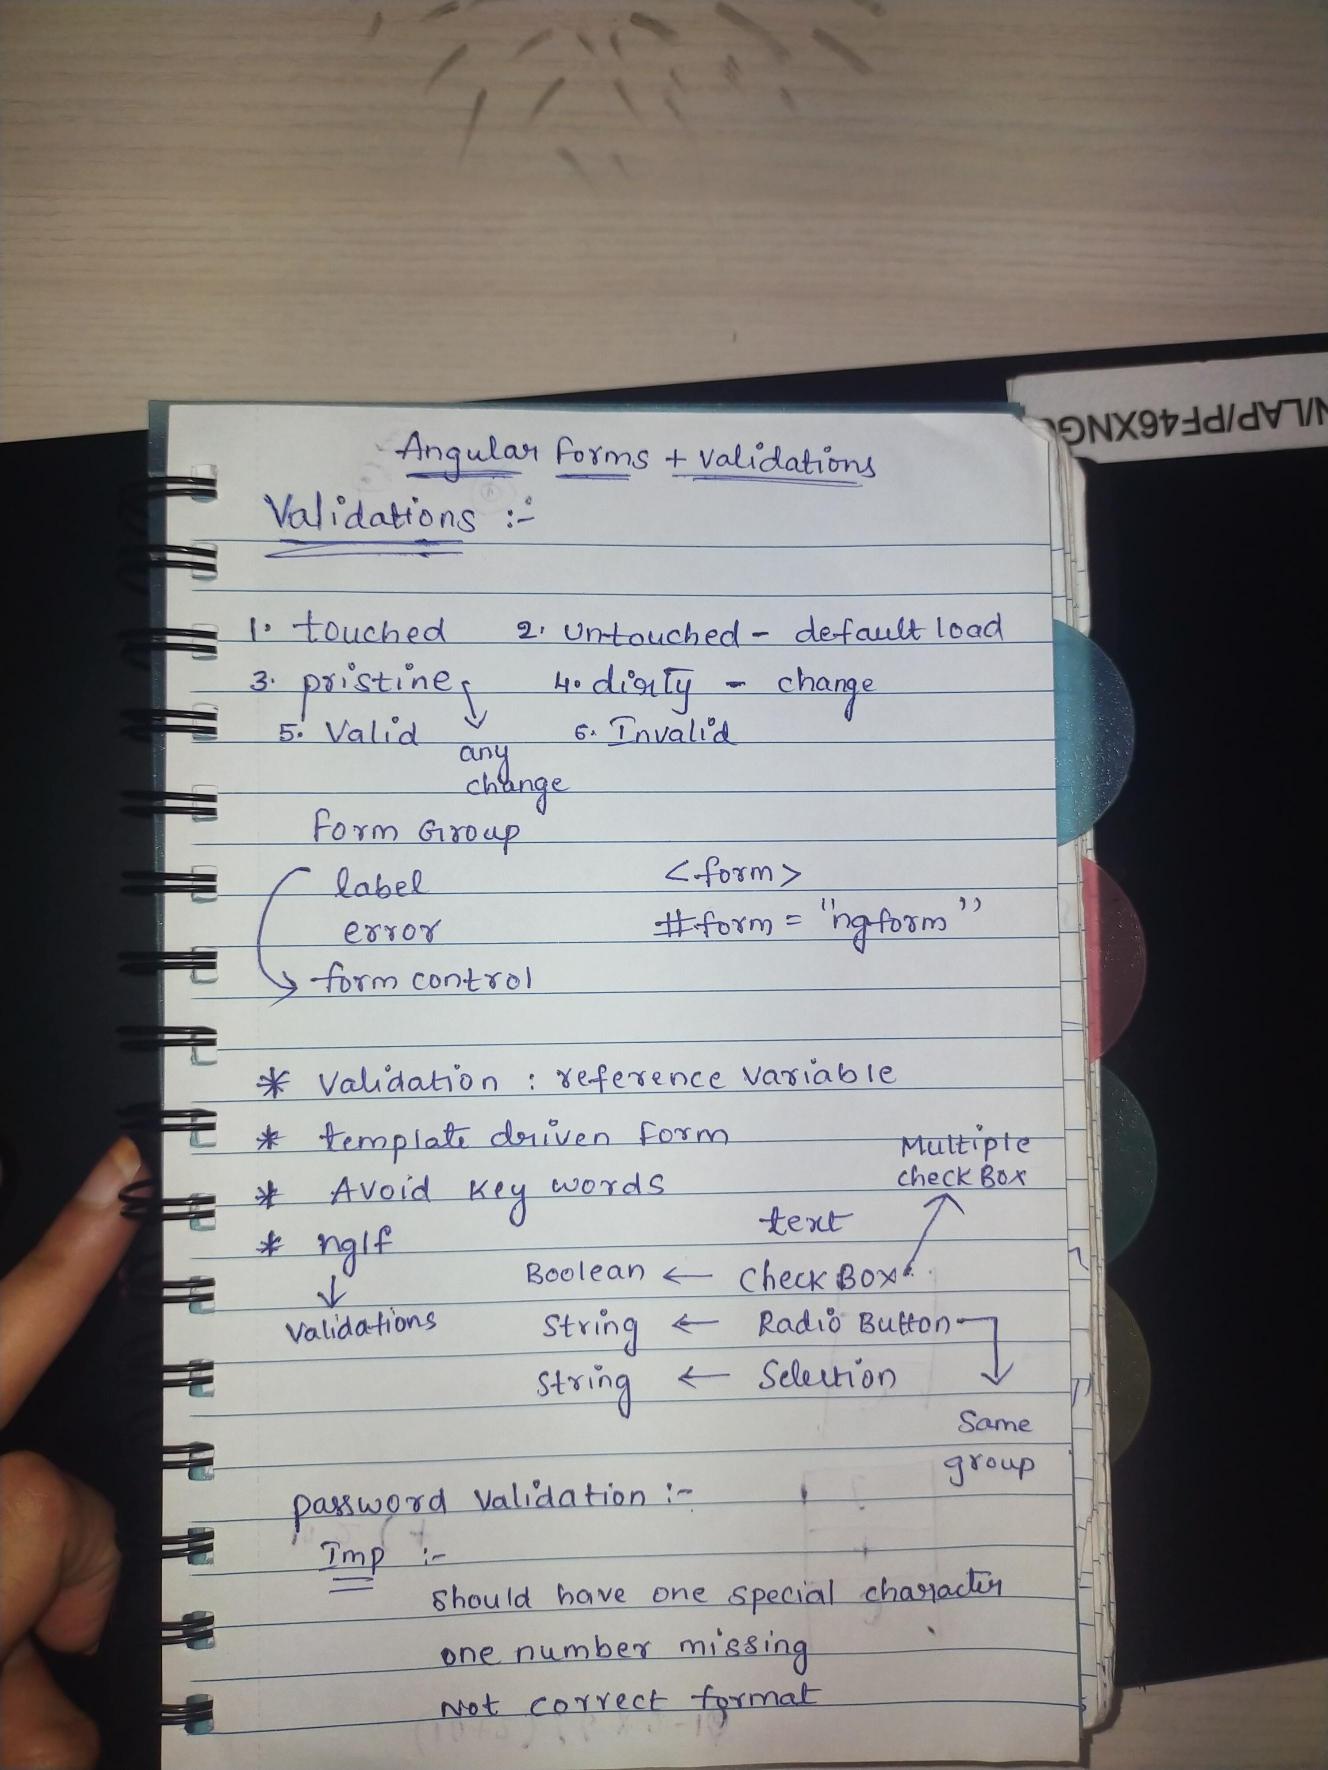 N/LAP/PF46XNG
Angular forms + validations
Validations :-
1. touched 2. untouched - default load
3. pristine 4. dirty - change
5. Valid 6. Invalid
any
change
Form Group
label <form>
error #form = "ngform"
form control
* Validation : reference variable
* template driven form
Multiple
check Box
* Avoid key words
text
* ngIf
Boolean ← check Box
↓
Validations String ← Radio Button
String ← Selection
Same
group
password validation :-
Imp :-
should have one special character
one number missing
Not correct format